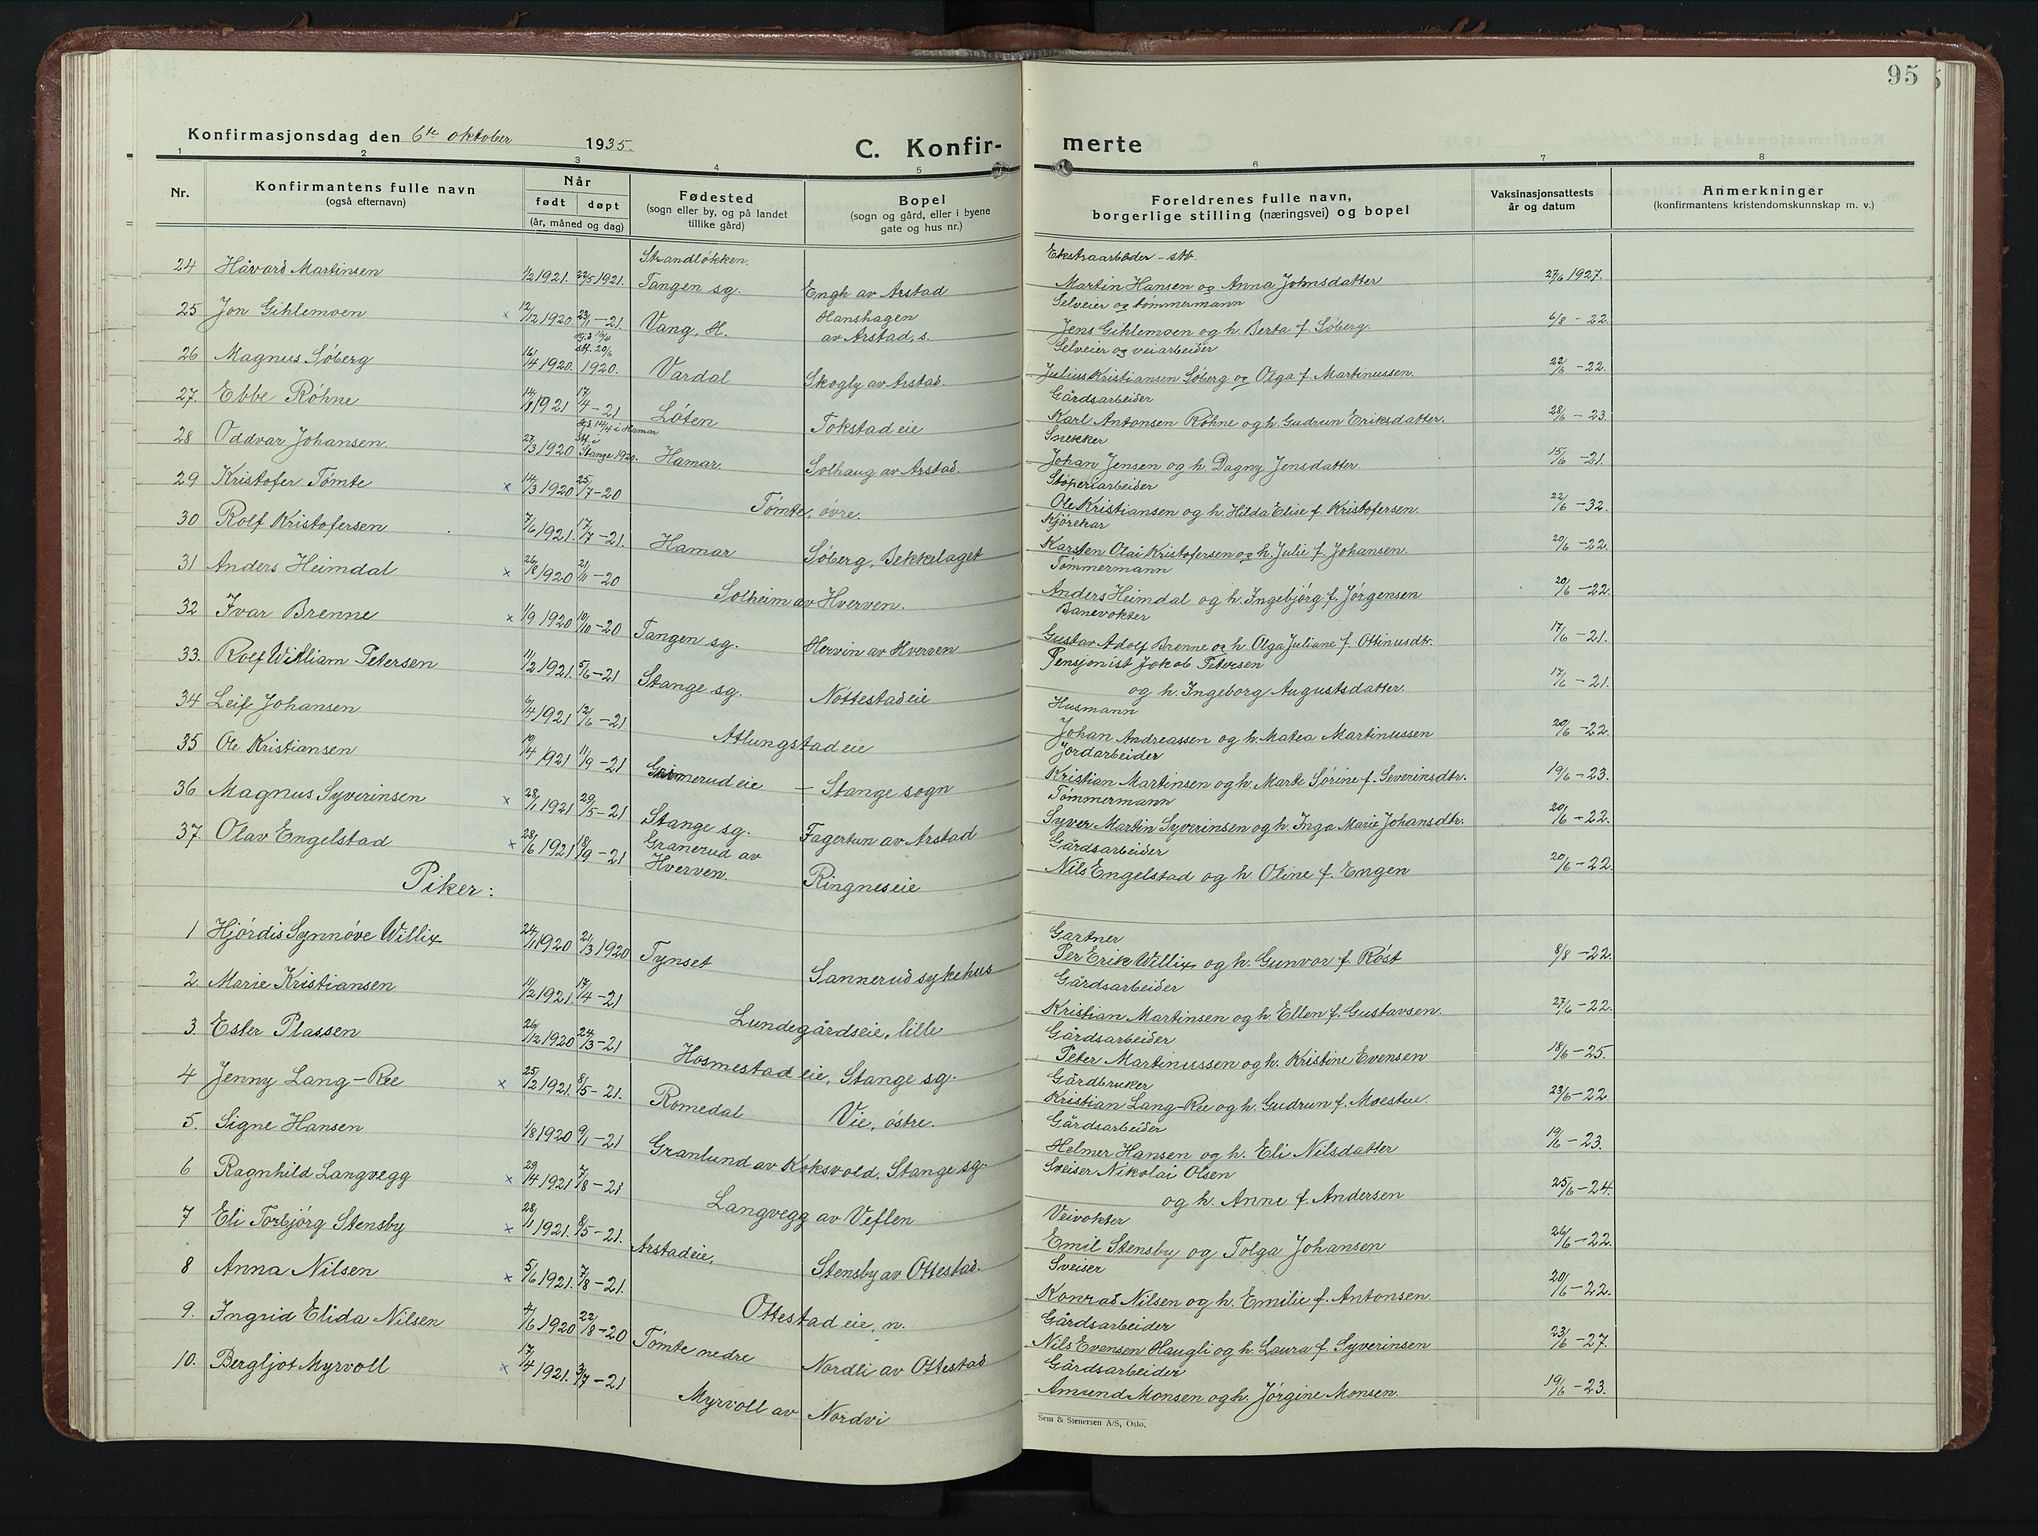 95
Konfirmasjonsdag den 6te oktober 1935.
C. Konfir-
merte
1 2 3 4 5 6 7 8
Nr.
Konfirmantens fulle navn
(også efternavn)
Når
født døpt
(år, måned og dag)
Fødested
(sogn eller by, og på landet
tillike gård)
Bopel
(sogn og gård, eller i byene
gate og hus nr.)
Foreldrenes fulle navn,
borgerlige stilling (næringsvei) og bopel
Vaksinasjonsattests
år og datum
Anmerkninger
(konfirmantens kristendomskunnskap m. v.)
Strandløkken. Ekstraarbeder - stb.
24 Håvard Martinsen 1/2 1921. 22/5 1921. Tangen sg. Engh av Arstad Martin Hansen og Anna Johnsdatter 27/6 1927.
Hanshagen Selveier og tømmermann
25 Jon Gihlemoen x 12/12 1920 23/1 -21. Vang, H. av Arstad, s. Jens Gihlemoen og h. Berta f. Søberg. 6/8 -22.
dg.d 16/4 stf. 20/6 Selveier og veiarbeider
26 Magnus Søberg 16/4 1920. 1920. Vardal Skogly av Arstad. Julius Kristiansen Søberg og Olga f. Martinussen. 22/6 -22.
Gårdsarbeider
27. Ebbe Røhne 1921 17/4 -21 Løten Tokstadeie Karl Antonsen Røhne og h. Gudrun Eriksdatter. 28/6 -23.
14/4 i Hamar Snekker
28 Oddvar Johansen. 27/3 1920 stf. i Stange 1920. Hamar Solhaug av Arstad. Johan Jensen og h. Dagny Jensdatter 15/6 -21.
Støperiarbeider
29 Kristofer Tømte x 14/3 1920 25/7 -20 Tømte, øvre. Ole Kristiansen og h. Hilda Elise f. Kristofersen. 22/6 -32.
Kjørekar
30 Rolf Kristofersen 7/6 1921. 17/7 -21. Hamar Søberg, Bekkelaget Karsten Olai Kristofersen og h. Julie f. Johansen. 20/6 -22.
Tømmermann
31 Anders Heimdal x 26/8 1920 21/11 -20 Solheim av Hverven. Anders Heimdal og h. Ingebjørg f. Jørgensen 20/6 -22.
Banevokter
32 Ivar Brenne x 1/9 1920 10/10 -20 Tangen sg. Hervin av Hverven Gustav Adolf Brenne og h. Olga Juliane f. Ottinusdtr. 17/6 -21.
Pensjonist Jakob Petersen
33. Rolf William Petersen 11/2 1921. 5/6 -21 Stange sg. Nøttestadeie og h. Ingeborg Augustsdatter. 17/6 -21.
Husmann
34 Leif Johansen 6/4 1921 12/6 -21 Atlungstadeie Johan Andreassen og h. Matea Martinussen 20/6 -22.
Jordarbeider
35 Ole Kristiansen 10/4 1921 11/9 -21 Grimerudeie - Stange sogn Kristian Martinsen og h. Marte Sørine f. Severinsdtr. 19/6 -23.
Tømmermann
36 Magnus Syverinsen x 28/1 1921 29/5 -21 Stange sg. Fagertun av Arstad Syver Martin Syverinsen og h. Inga Marie Johansdtr. 20/6 -22.
Granerud av Gårdsarbeider
37. Olav Engelstad x 28/6 1921 18/9 -21 Hverven. Ringneseie Nils Engelstad og h. Oline f. Engen 20/6 -22.
Piker:
Gartner
1 Hjørdis Synnøve Willix 24/1 1920 21/3 1920 Tynset Sannerud sykehus Per Erik Willix og h. Gunvor f. Røst 8/8 -22.
Gårdsarbeider
2. Marie Kristiansen 11/2 1921. 17/4 -21 Lundegårdseie, lille Kristian Martinsen og h. Ellen f. Gustavsen. 27/6 -22.
Gårdsarbeider
3. Ester Plassen 26/12 1920 24/3 -21 Hosmestadeie, Stange sg. Peter Martinussen og h. Kristine Evensen 18/6 -25.
Gårdbruker
4 Jenny Lang-Ree x 25/2 1921. 8/5 -21. Romedal Vie, østre. Kristian Lang-Ree og h. Gudrun f. Moestue. 23/6 -22.
Gårdsarbeider
5. Signe Hansen 1/8 1920 9/1 -21 Granlund av Koksvold, Stange sg. Helmer Hansen og h. Eli Nilsdatter 19/6 -23.
Sveiser Nikolai Olsen
6 Ragnhild Langvegg x 29/4 1921 7/8 -21 Langvegg av Veflen og h. Anne f. Andersen 25/6 -24.
Veivokter
7 Eli Torbjørg Stensby x 28/1 1921. 8/5 -21. Arstadeie, Stensby av Ottestad. Emil Stensby og Tolga Johansen 26/6 -22.
Sveiser
8 Anna Nilsen x 5/6 1921. 7/8 -21. Ottestadeie, n. Konrad Nilsen og h. Emilie f. Antonsen. 20/6 -22.
Gårdsarbeider
9. Ingrid Elida Nilsen 4/6 1920 22/8 -20 Tømte nedre Nordli av Ottestad Nils Evensen Haugli og h. Laura f. Syverinsen 23/6 -27.
Gårdsarbeider
10. Bergljot Myrvoll x 17/4 1921. 3/7 -21 Myrvoll av Nordvi Amund Monsen og h. Jørgine Monsen. 19/6 -23.
Sem & Stenersen A/S, Oslo.